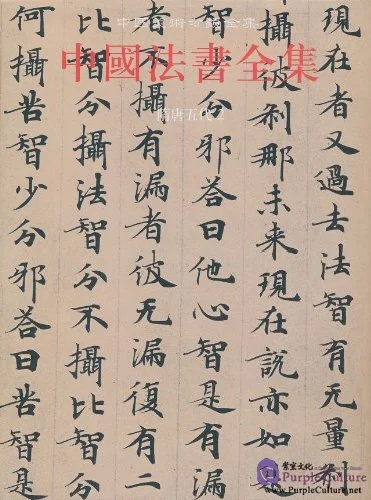 中國美術分類全集
中國法書全集
隋唐五代 2
現在者又過去法智有无量
攝彼刹那未来現在說亦如
智少分邪荅曰他心智是有漏
者不攝有漏者彼无漏復有二
比智分攝法智分不攝比智分
何攝苦智少分邪荅曰苦智是
文化
PurpleCulture
www.PurpleCulture.net